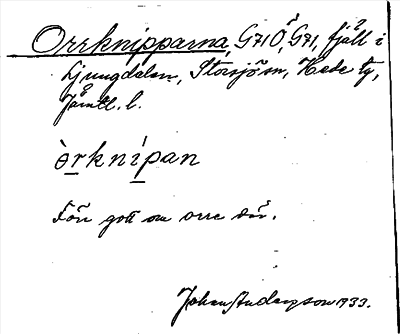 Orrknipparna, G71Ö, G71, fjäll i
Ljungdalen, Storsjösn, Hede tg,
Jämtl. l.
òrknípan
Förr gott om orre där.
Johan Andersson 1933.